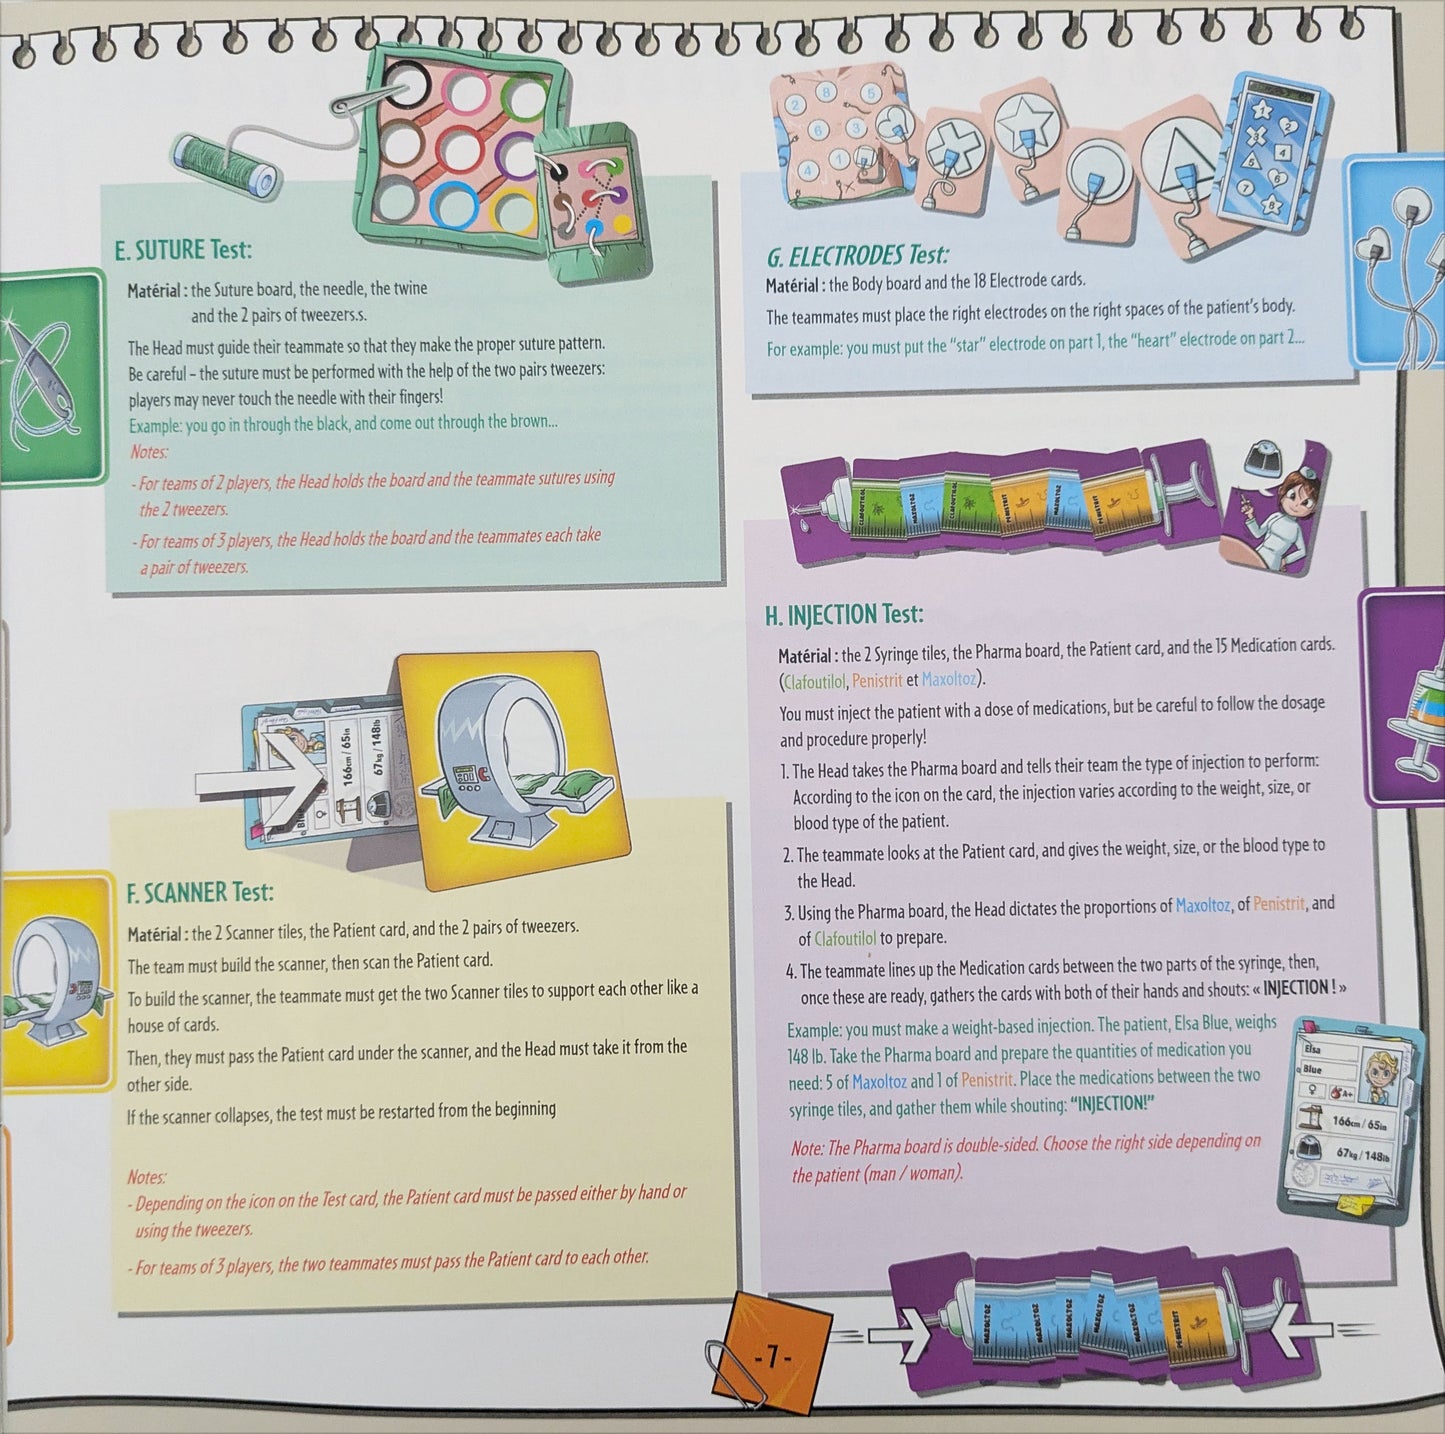 E. SUTURE Test:
Matérial : the Suture board, the needle, the twine
and the 2 pairs of tweezers.s.
The Head must guide their teammate so that they make the proper suture pattern.
Be careful – the suture must be performed with the help of the two pairs tweezers:
players may never touch the needle with their fingers!
Example: you go in through the black, and come out through the brown...
Notes:
- For teams of 2 players, the Head holds the board and the teammate sutures using
the 2 tweezers.
- For teams of 3 players, the Head holds the board and the teammates each take
a pair of tweezers.
166cm / 65in
67kg / 148lb
F. SCANNER Test:
Matérial : the 2 Scanner tiles, the Patient card, and the 2 pairs of tweezers.
The team must build the scanner, then scan the Patient card.
To build the scanner, the teammate must get the two Scanner tiles to support each other like a
house of cards.
Then, they must pass the Patient card under the scanner, and the Head must take it from the
other side.
If the scanner collapses, the test must be restarted from the beginning
Notes:
- Depending on the icon on the Test card, the Patient card must be passed either by hand or
using the tweezers.
- For teams of 3 players, the two teammates must pass the Patient card to each other.
2 8 5
6 3
4 1
1
2
3
4
5
6
7
8
G. ELECTRODES Test:
Matérial : the Body board and the 18 Electrode cards.
The teammates must place the right electrodes on the right spaces of the patient's body.
For example: you must put the "star" electrode on part 1, the "heart" electrode on part 2...
CLAFOUTILOL MAXOLTOZ CLAFOUTILOL PENISTRIT MAXOLTOZ PENISTRIT
H. INJECTION Test:
Matérial : the 2 Syringe tiles, the Pharma board, the Patient card, and the 15 Medication cards.
(Clafoutilol, Penistrit et Maxoltoz).
You must inject the patient with a dose of medications, but be careful to follow the dosage
and procedure properly!
1. The Head takes the Pharma board and tells their team the type of injection to perform:
According to the icon on the card, the injection varies according to the weight, size, or
blood type of the patient.
2. The teammate looks at the Patient card, and gives the weight, size, or the blood type to
the Head.
3. Using the Pharma board, the Head dictates the proportions of Maxoltoz, of Penistrit, and
of Clafoutilol to prepare.
4. The teammate lines up the Medication cards between the two parts of the syringe, then,
once these are ready, gathers the cards with both of their hands and shouts: « INJECTION ! »
Example: you must make a weight-based injection. The patient, Elsa Blue, weighs
148 lb. Take the Pharma board and prepare the quantities of medication you
need: 5 of Maxoltoz and 1 of Penistrit. Place the medications between the two
syringe tiles, and gather them while shouting: "INJECTION!"
Note: The Pharma board is double-sided. Choose the right side depending on
the patient (man / woman).
Elsa
Blue
♀ A+
166cm / 65in
67kg / 148lb
MAXOLTOZ MAXOLTOZ MAXOLTOZ MAXOLTOZ MAXOLTOZ PENISTRIT
-7-